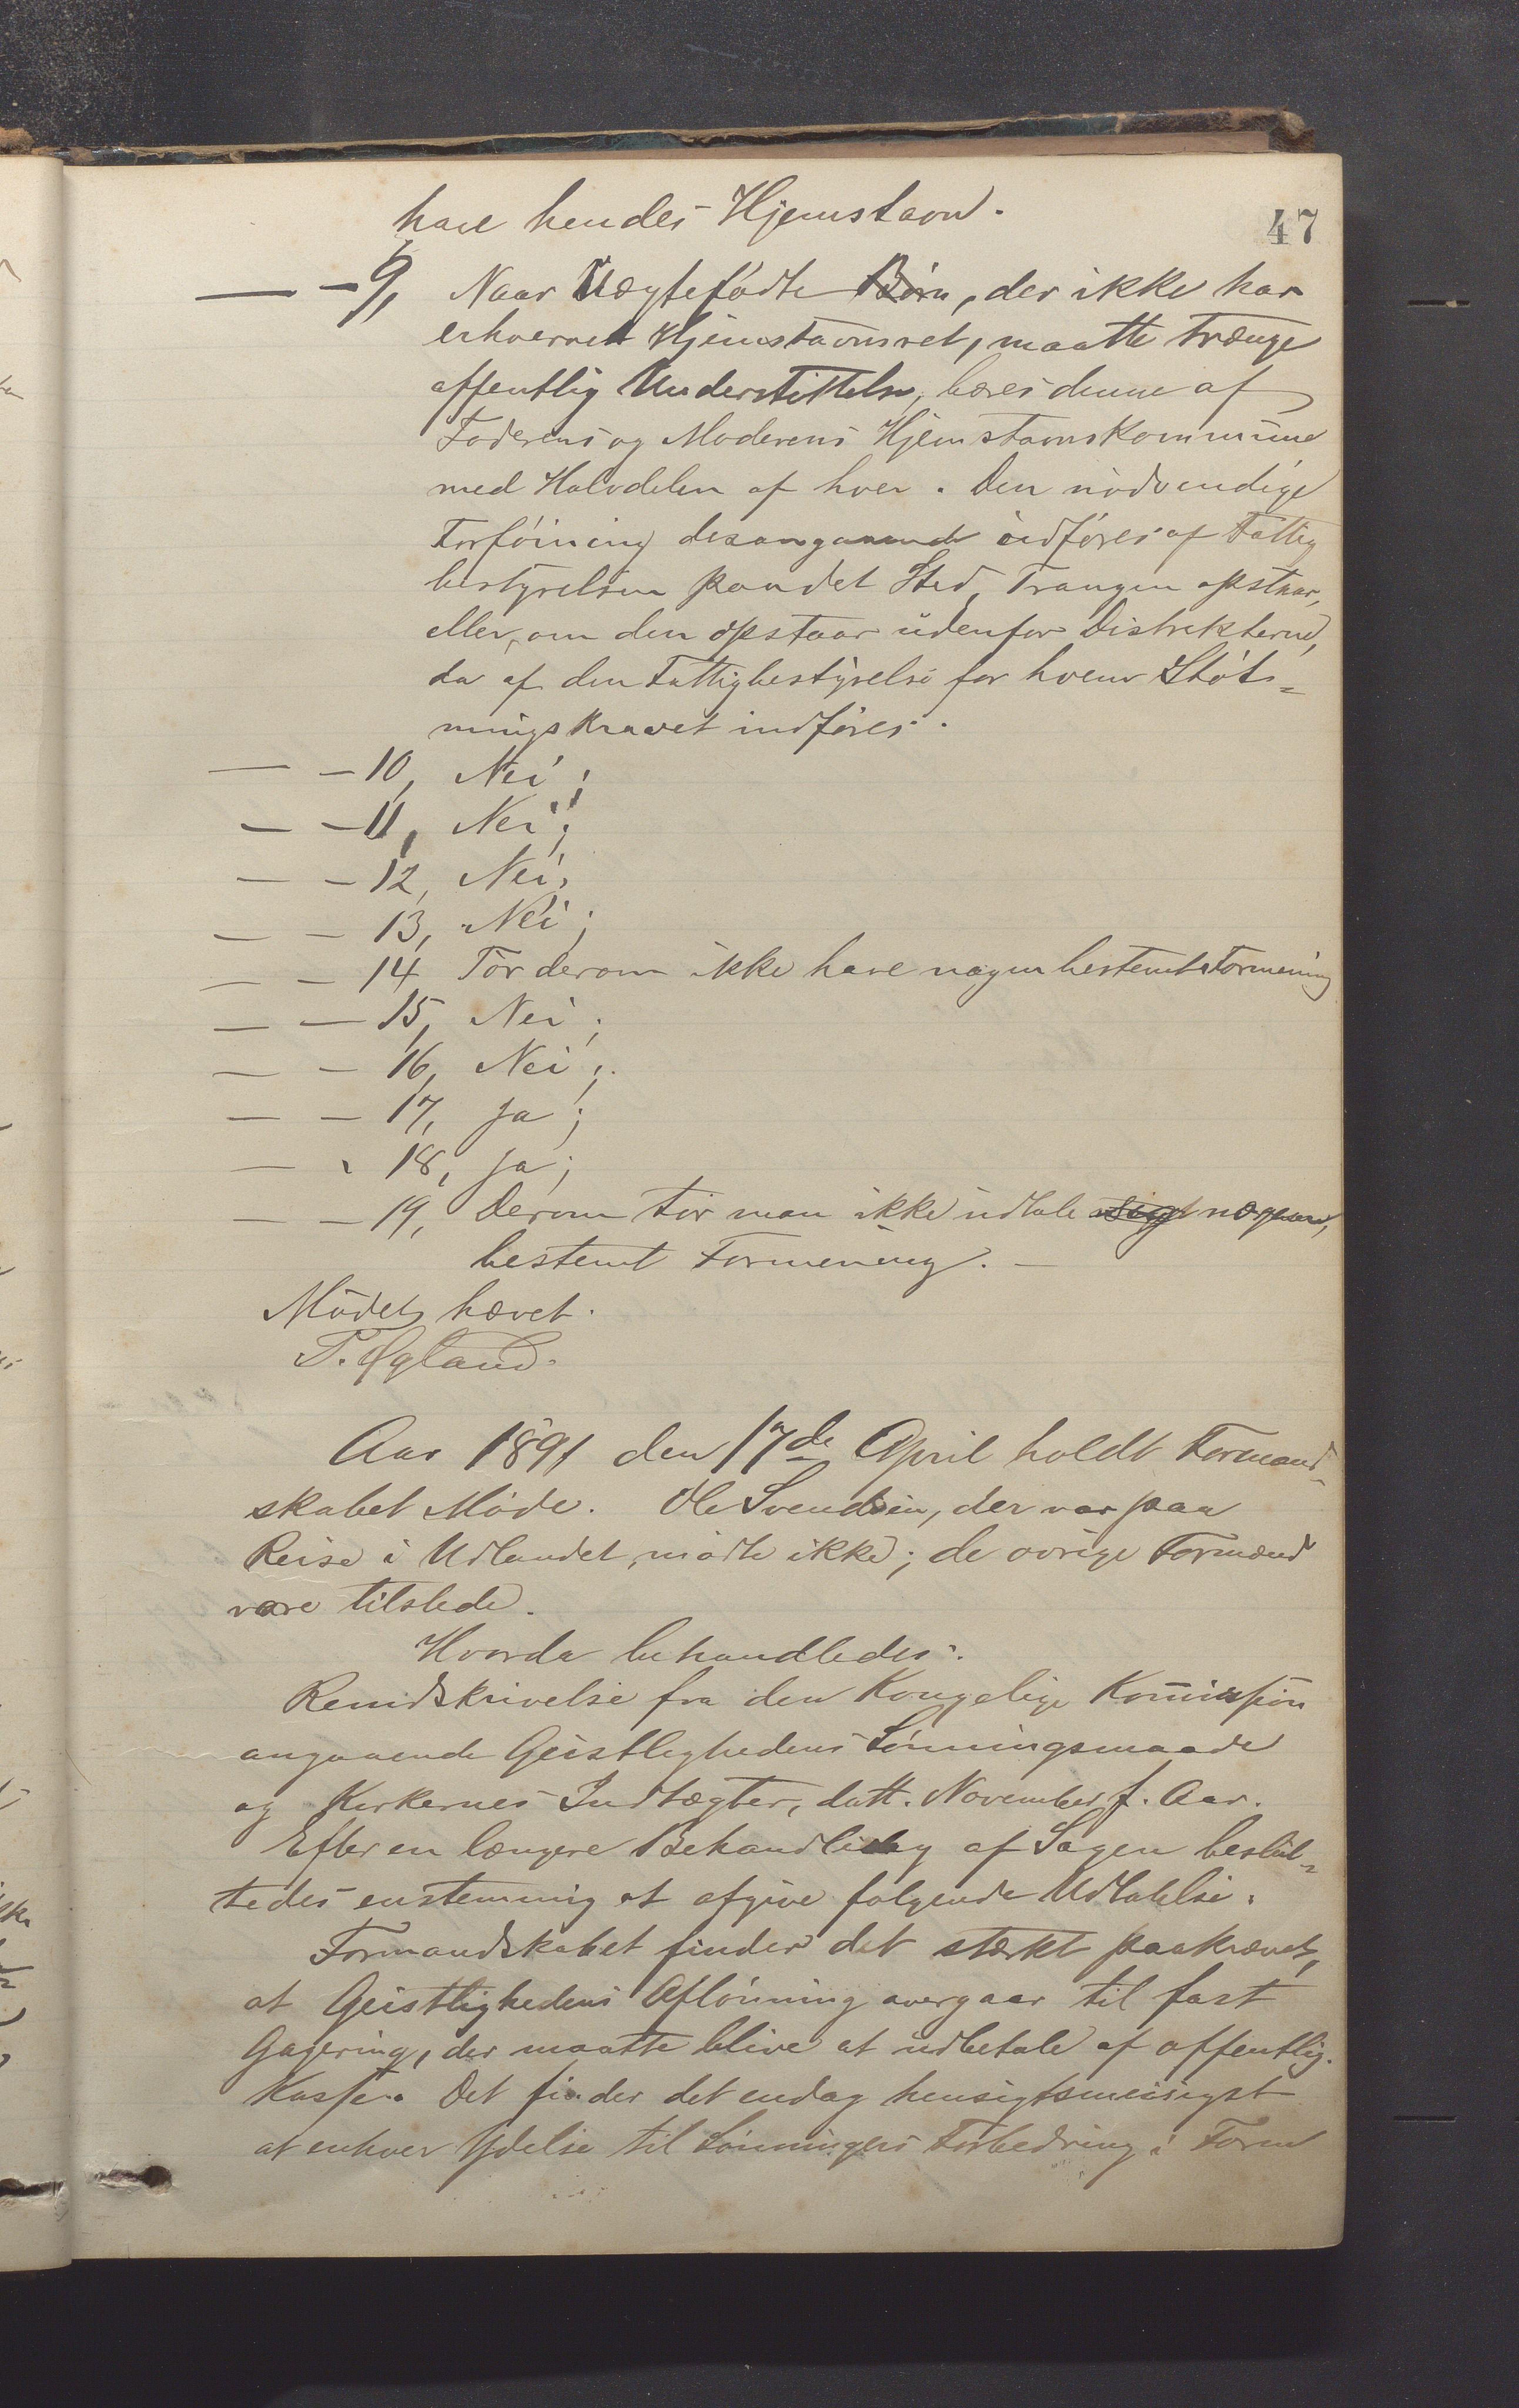 47
have hendes Hjemstavn.
— — 9, Naar Uægtefødte Børn, der ikke har
erhvervet Hjemstavnsret, maatte trænge
offentlig Understøttelse, bæres denne af
Faderens og Moderens Hjemstavnskommune
med Halvdelen af hver. Den nødvendige
Forføining desangaaende indføres af Fattig
bestyrelsen paa det Sted, Trangen opstaar,
eller, om den opstaar udenfor Distrikterne,
da af den Fattigbestyrelse for hvem Støt-
ningskravet indføres.
— — 10, Nei;
— — 11, Nei;
— — 12, Nei;
— — 13, Nei;
— — 14 Tør derom ikke have nogen bestemt Formening
— — 15, Nei;
— — 16, Nei;
— — 17, Ja;
— - 18, Ja;
— — 19, Derom tør man ikke udtale nogen
bestemt Formening. —
Mødet hævet.
T. Øgland.
Aar 1891 den 17de April holdt Formand-
skabet Møde. Ole Svendsen, der var paa
Reise i Udlandet, mødte ikke; de øvrige Formænd
vare tilstede.
Hvorda behandledes:
Rundskrivelse fra den Kongelige Kommission
angaaende Geistlighedens Lønningsmaade
og Kirkernes Indtægter, datt. November f. Aar.
Efter en længere Behandling af Sagen beslut-
tedes enstemmig at afgive følgende Udtalelse:
Formandskabet finder det stærkt paakrævet,
at Geistlighedens Aflønning overgaar til fast
Gagering, der maatte blive at udbetale af offentlig
Kasse. Det finder det endog hensigtsmæssigst
at enhver Ydelse til Lønningers Forbedring i Form